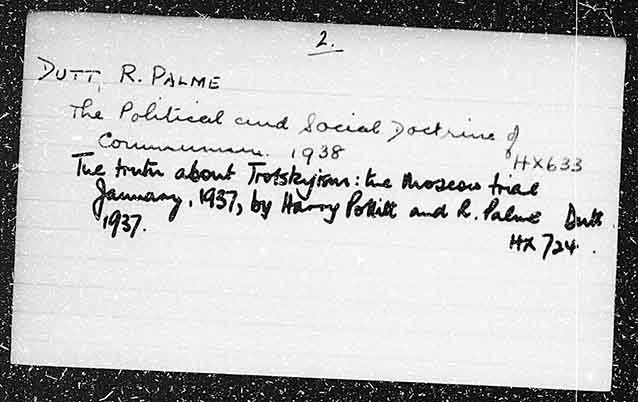 2.
DUTT, R. PALME
The Political and Social Doctrine of
Communism. 1938 HX633
The truth about Trotskyism: the Moscow trial
January, 1937, by Harry Pollitt and R. Palme Dutt.
1937. HX 724.